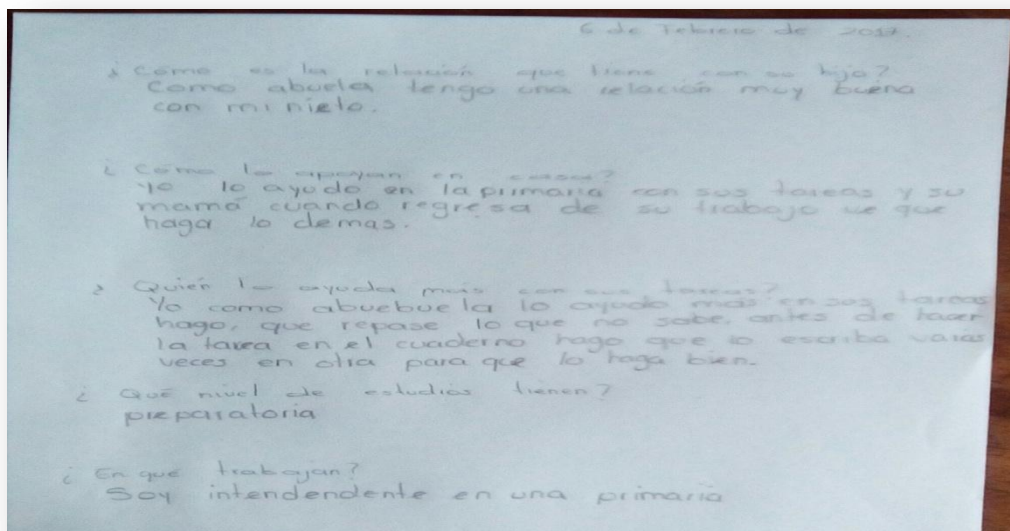 6 de Febrero de 2017.
¿ Cómo es la relación que tiene con su hijo?
Como abuela tengo una relación muy buena
con mi nieto.
¿ Cómo lo apoyan en casa?
Yo lo ayudo en la primaria con sus tareas y su
mamá cuando regresa de su trabajo ve que
haga lo demas.
¿ Quién lo ayuda más con sus tareas?
Yo como abuebuela lo ayudo más en sus tareas
hago, que repase lo que no sabe, antes de hacer
la tarea en el cuaderno hago que lo escriba varias
veces en otra para que lo haga bien.
¿ Qué nivel de estudios tienen?
preparatoria
¿ En que trabajan?
Soy intendendente en una primaria